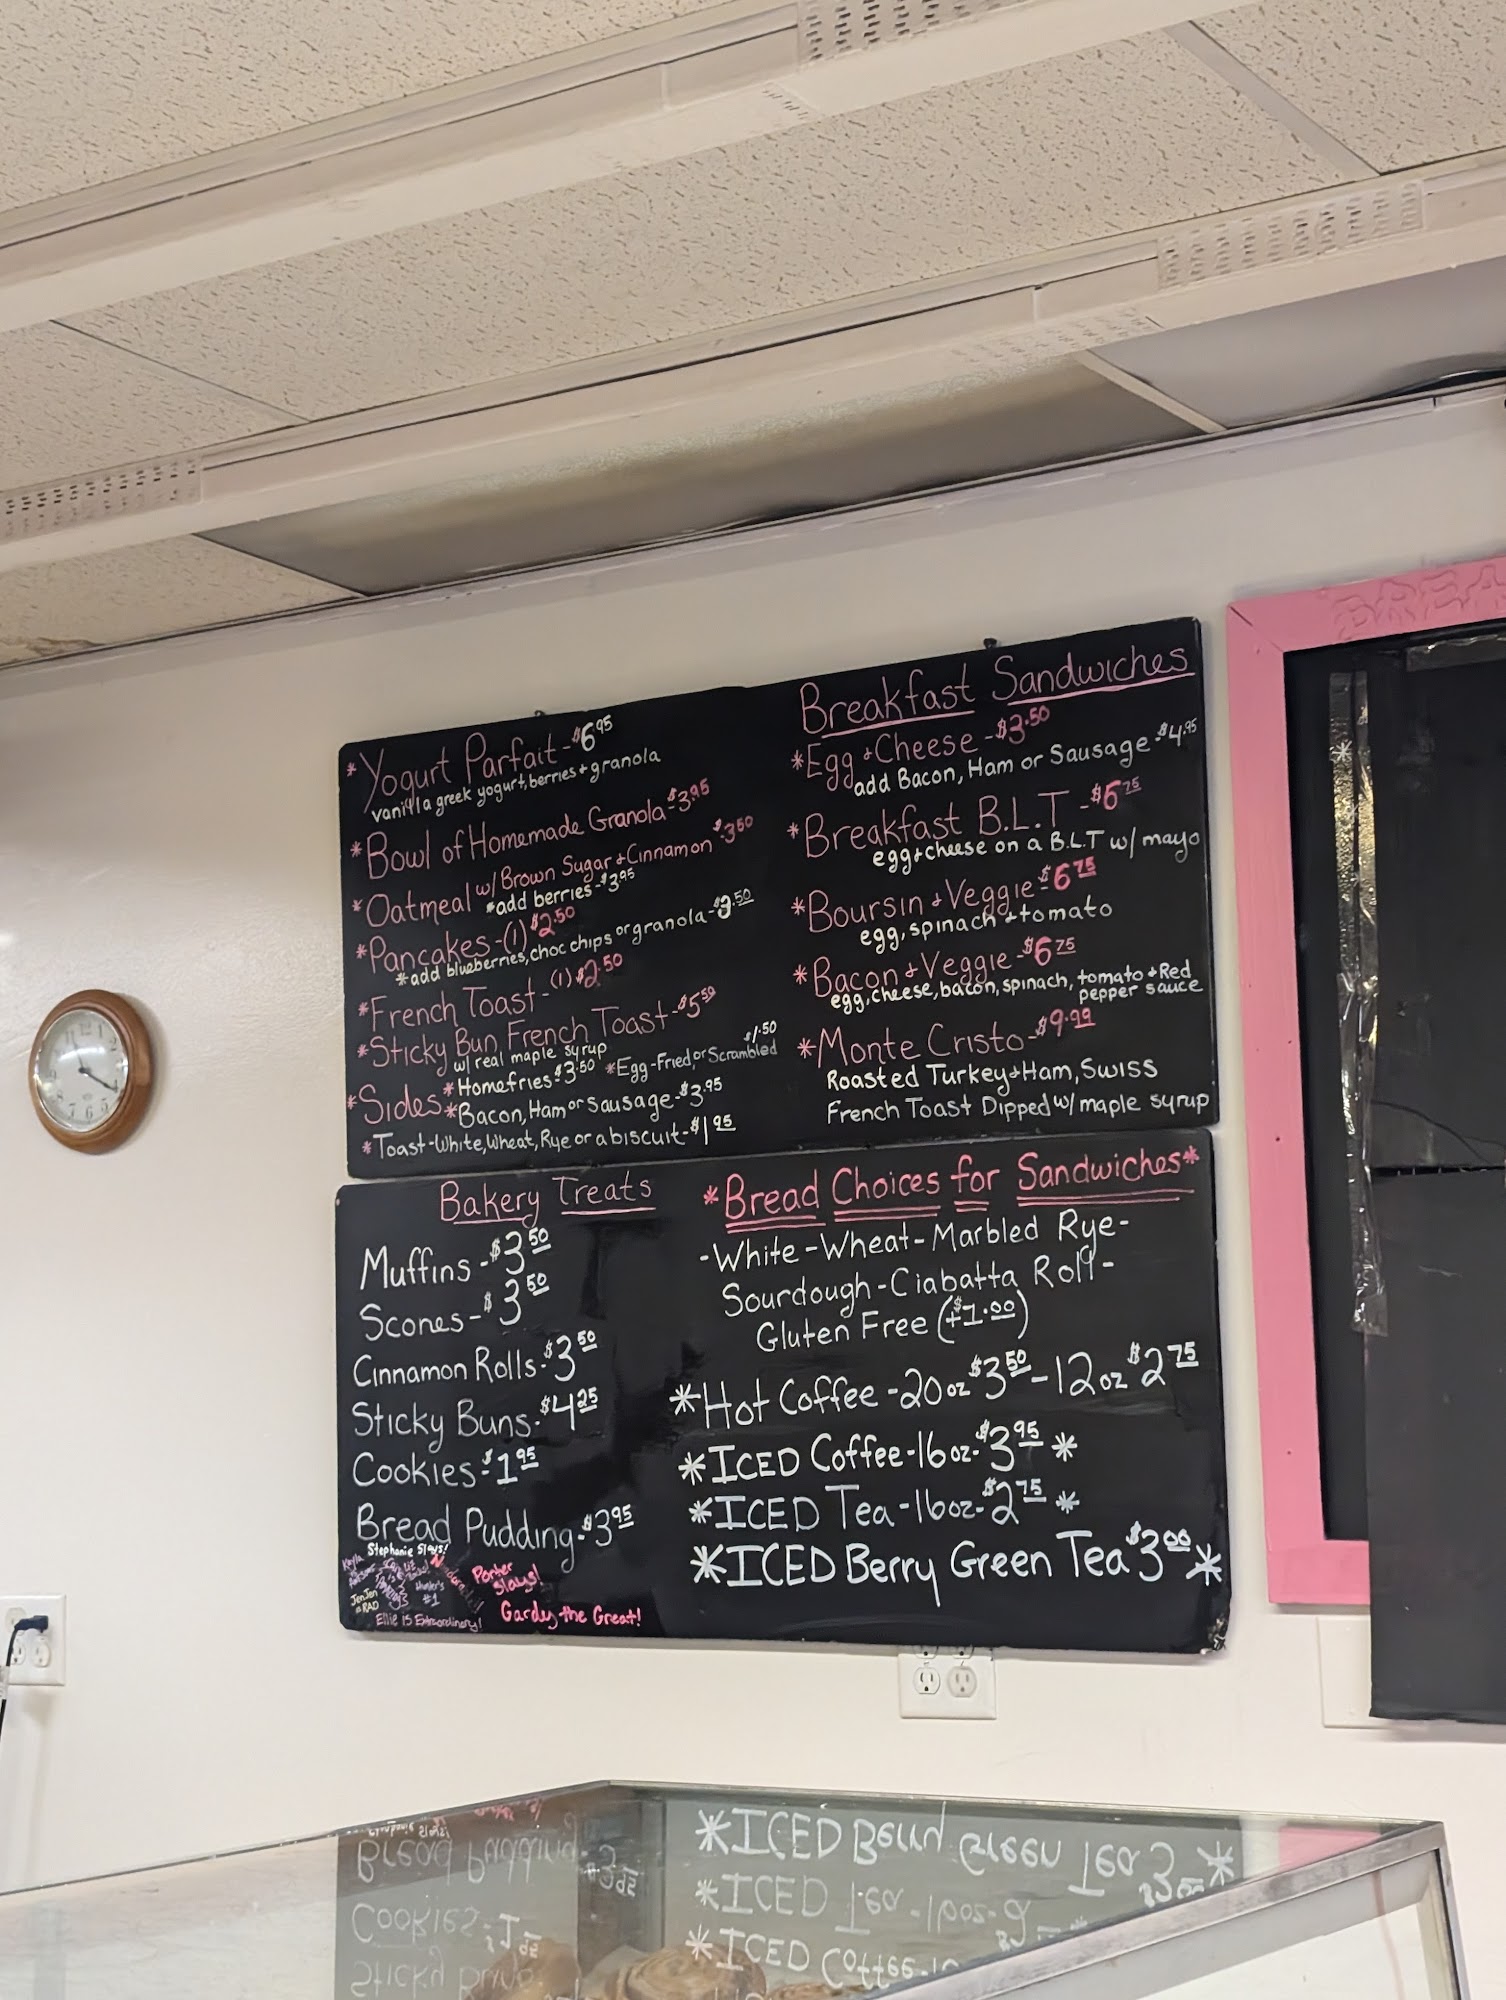 *Yogurt Parfait-$6.95
vanilla greek yogurt, berries + granola
*Bowl of Homemade Granola-$3.95
*Oatmeal w/ Brown Sugar + Cinnamon $3.50
*add berries-$3.95
*Pancakes-(1) $2.50
*add blueberries, choc chips or granola-$3.50
*French Toast-(1) $2.50
*Sticky Bun French Toast-$5.50
w/ real maple syrup
*Sides *Homefries-$3.50 *Egg-Fried, or Scrambled $1.50
*Bacon, Ham or Sausage-$3.95
*Toast-White, Wheat, Rye or a biscuit-$1.95
Breakfast Sandwiches
*Egg + Cheese-$3.50
add Bacon, Ham or Sausage-$4.95
*Breakfast B.L.T-$6.75
egg + cheese on a B.L.T w/ mayo
*Boursin + Veggie-$6.75
egg, spinach + tomato
*Bacon + Veggie-$6.75
egg, cheese, bacon, spinach, tomato + Red
pepper sauce
*Monte Cristo-$9.99
Roasted Turkey + Ham, Swiss
French Toast Dipped w/ maple syrup
Bakery Treats
Muffins-$3.50
Scones-$3.50
Cinnamon Rolls-$3.50
Sticky Buns-$4.25
Cookies-$1.95
Bread Pudding-$3.95
Stephanie Slays!
Kayla
Hunter's
#1
JenJen
is RAD
Ellie is Extraordinary!
Porter
Slays!
Gardy the Great!
*Bread Choices for Sandwiches*
-White-Wheat-Marbled Rye-
Sourdough-Ciabatta Roll-
Gluten Free (+$1.00)
*Hot Coffee-20oz $3.50-12oz $2.75
*ICED Coffee-16oz-$3.95*
*ICED Tea-16oz-$2.75*
*ICED Berry Green Tea $3.00*
BREA